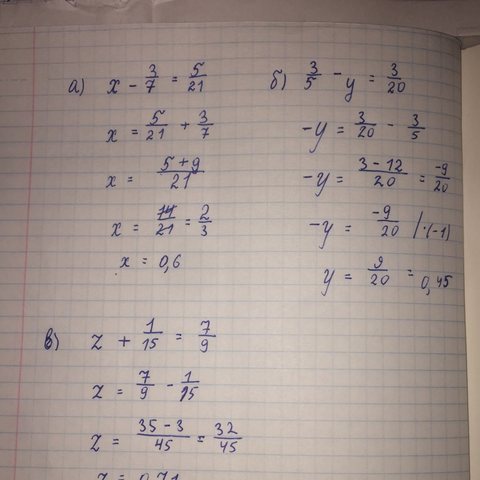 а) x - 3/7 = 5/21
x = 5/21 + 3/7
x = (5+9)/21
x = 14/21 = 2/3
x = 0,6
б) 3/5 - y = 3/20
-y = 3/20 - 3/5
-y = (3-12)/20 = -9/20
-y = -9/20 |·(-1)
y = 9/20 = 0,45
в) z + 1/15 = 7/9
z = 7/9 - 1/15
z = (35-3)/45 = 32/45
z = 0,71